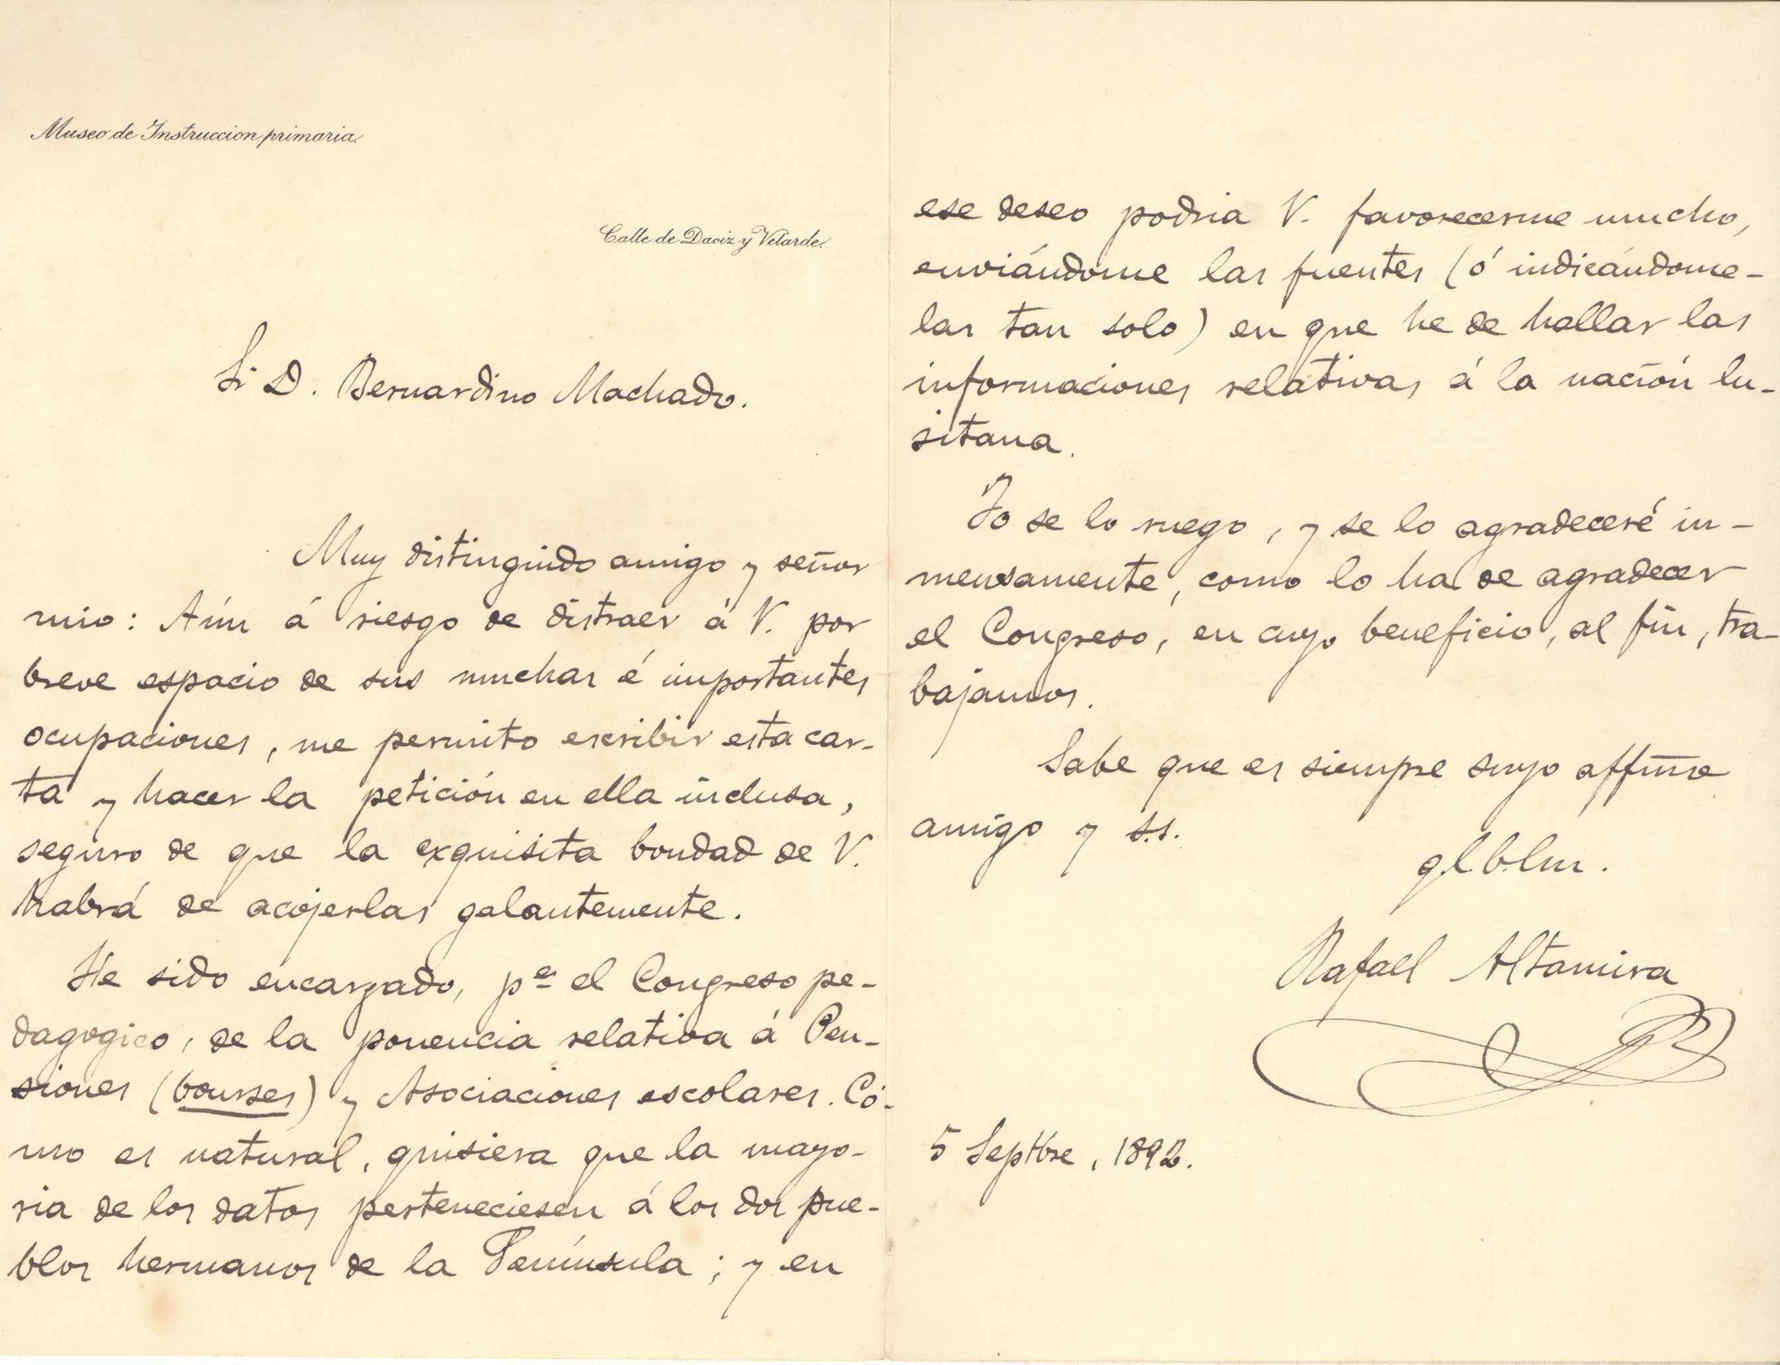 Museo de Instruccion primaria.
Calle de Daoiz y Velarde.
Sr D. Bernardino Machado.
Muy distinguido amigo y señor
mio: Aún á riesgo de distraer á V. por
breve espacio de sus muchas é importantes
ocupaciones, me permito escribir esta car-
ta y hacer la petición en ella inclusa,
seguro de que la exquisita bondad de V.
habrá de acojerlas galantemente.
He sido encargado, pa el Congreso pe-
dagogico, de la ponencia relativa á Pen-
siones (bourses) y Asociaciones escolares. Có-
mo es natural, quisiera que la mayo-
ria de los datos perteneciesen á los dos pue-
blos hermanos de la Península; y en
ese deseo podria V. favorecerme mucho,
enviándome las fuentes (ó indicándome-
las tan solo) en que he de hallar las
informaciones relativas á la nación lu-
sitana.
Yo se lo ruego, y se lo agradeceré in-
mensamente, como lo ha de agradecer
el Congreso, en cuyo beneficio, al fin, tra
bajamos.
Sabe que es siempre suyo affmo
amigo y s.s.
q.l.b.l.m.
Rafael Altamira
5 Septbre, 1892.